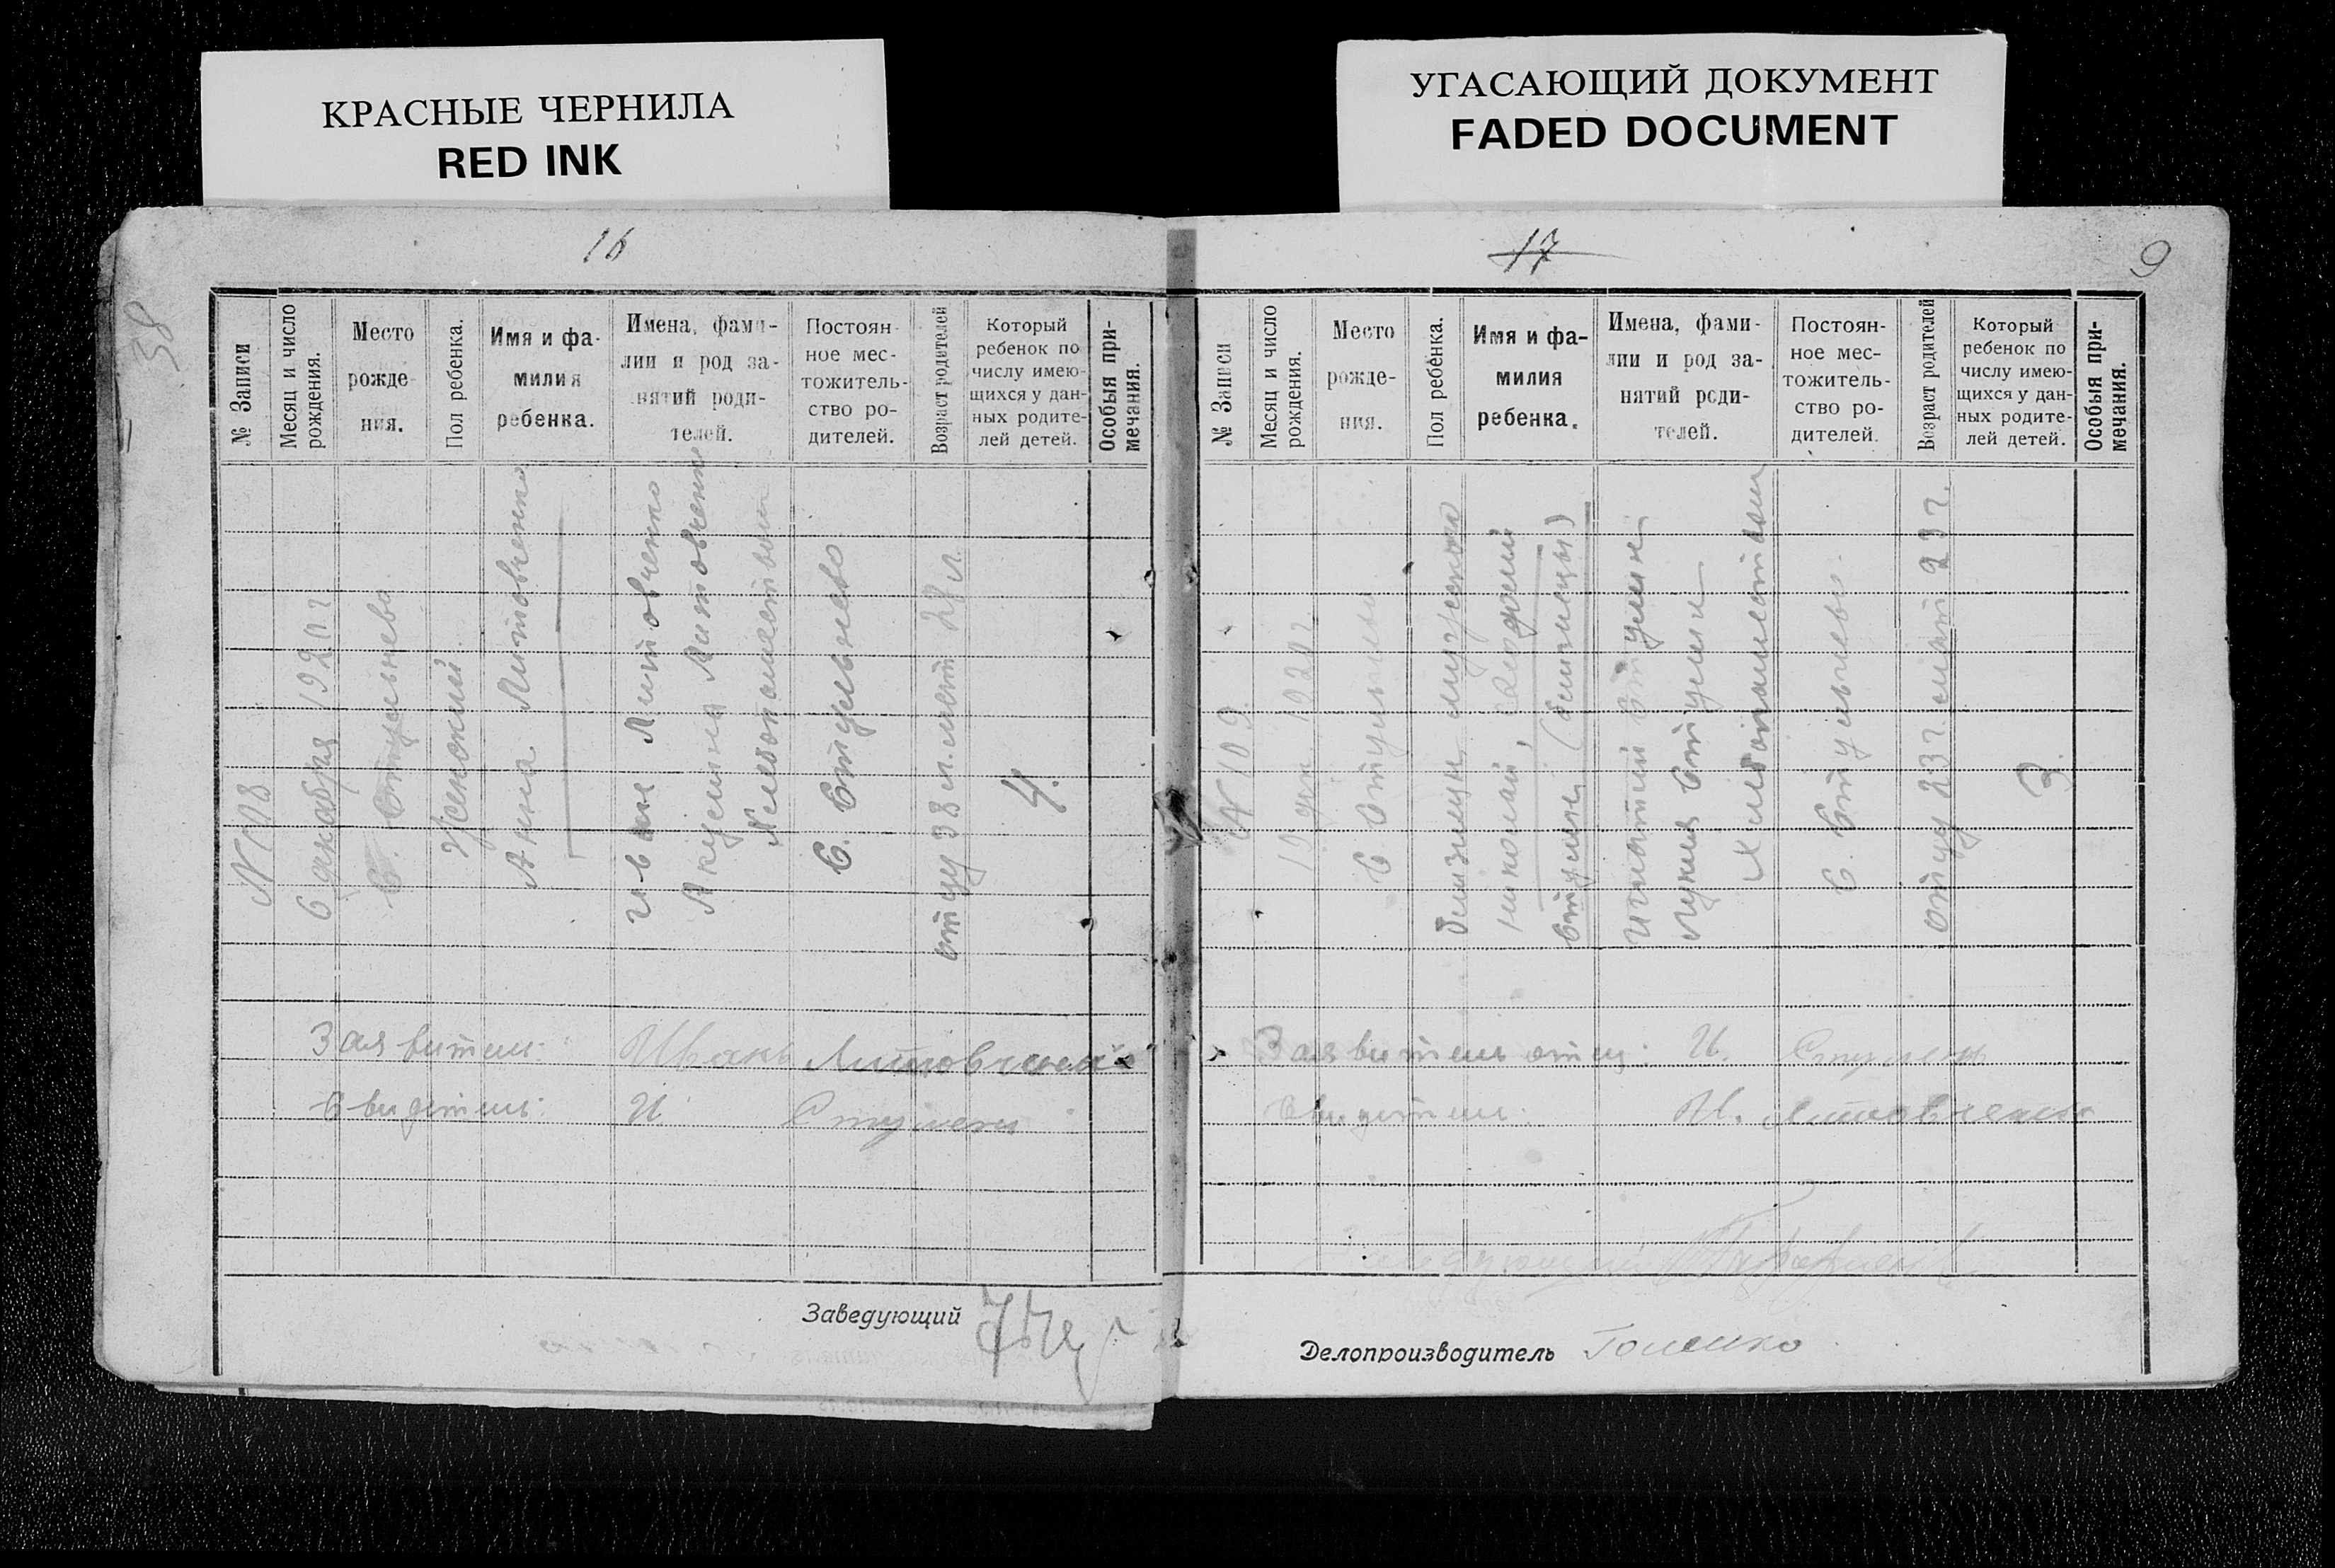 КРАСНЫЕ ЧЕРНИЛА
RED INK
УГАСАЮЩИЙ ДОКУМЕНТ
FADED DOCUMENT
16
38
№ Записи
Месяц и число рождения.
Место рожде-ния.
Пол ребенка.
Имя и фа-милия ребенка.
Имена, фами-лии и род за-нятий роди-телей.
Постоян-ное мес-тожитель-ство ро-дителей.
Возраст родителей
Который ребенок по числу имею-щихся у дан-ных родите-лей детей.
Особыя при-мечания.
№ 108
6 декабря 1920 г
С. Стульнево
Женский.
Анна Литовченко
Иван Литовченко
Акулина Литовченко
С. Стульнево
отцу 38 л. мат 38 л.
4.
Заявитель: Иван Литовченко
Свидетель: И. Стулень
Заведующий
17
9
№ Записи
Месяц и число рождения.
Место рожде-ния.
Пол ребёнка.
Имя и фа-милия ребенка.
Имена, фами-лии и род за-нятий роди-телей.
Постоян-ное мес-тожитель-ство ро-дителей.
Возраст родителей
Который ребенок по числу имею-щихся у дан-ных родите-лей детей.
Особыя при-мечания.
№ 109.
19 дек. 1920 г
С. Стульнево
николай,
(близнецы)
Игнатий
С. Стульнево.
отцу 23 г. мат 23 г.
3.
Заявитель отец: И. Стулень
Свидетель: И. Литовченко
Делопроизводитель